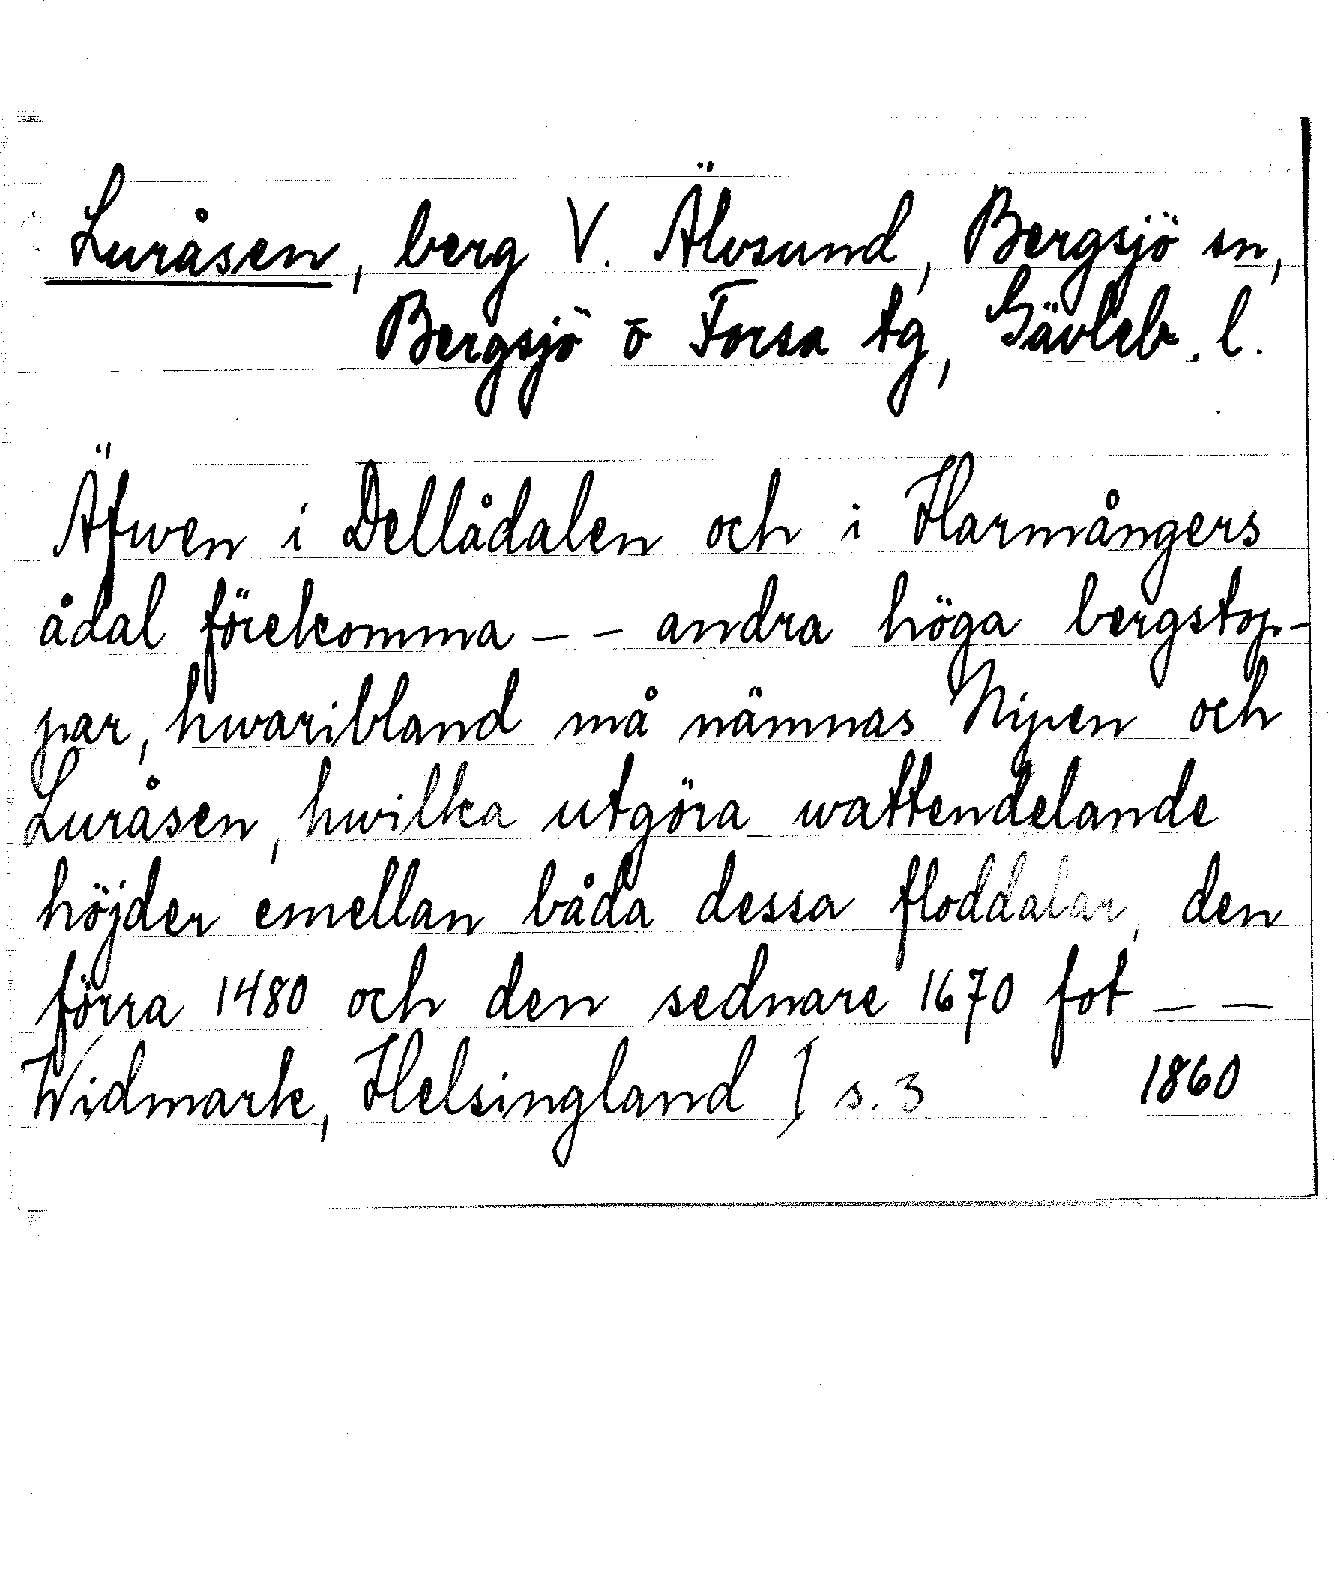 Luråsen, berg V. Älvsund, Bergsjö sn,
Bergsjö o Forsa tg, Gävleb. l.
Äfwen i Dellådalen och i Harmångers
ådal förekomma - - andra höga bergstop-
par, hwaribland må nämnas Nipen och
Luråsen, hwilka utgöra wattendelande
höjder emellan båda dessa floddalar, den
förra 1480 och den sednare 1670 fot - -
Widmark, Helsingland I s. 3 1860